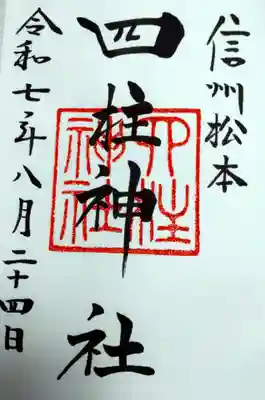 信州松本
四柱神社
四柱神社
令和七年八月二十四日